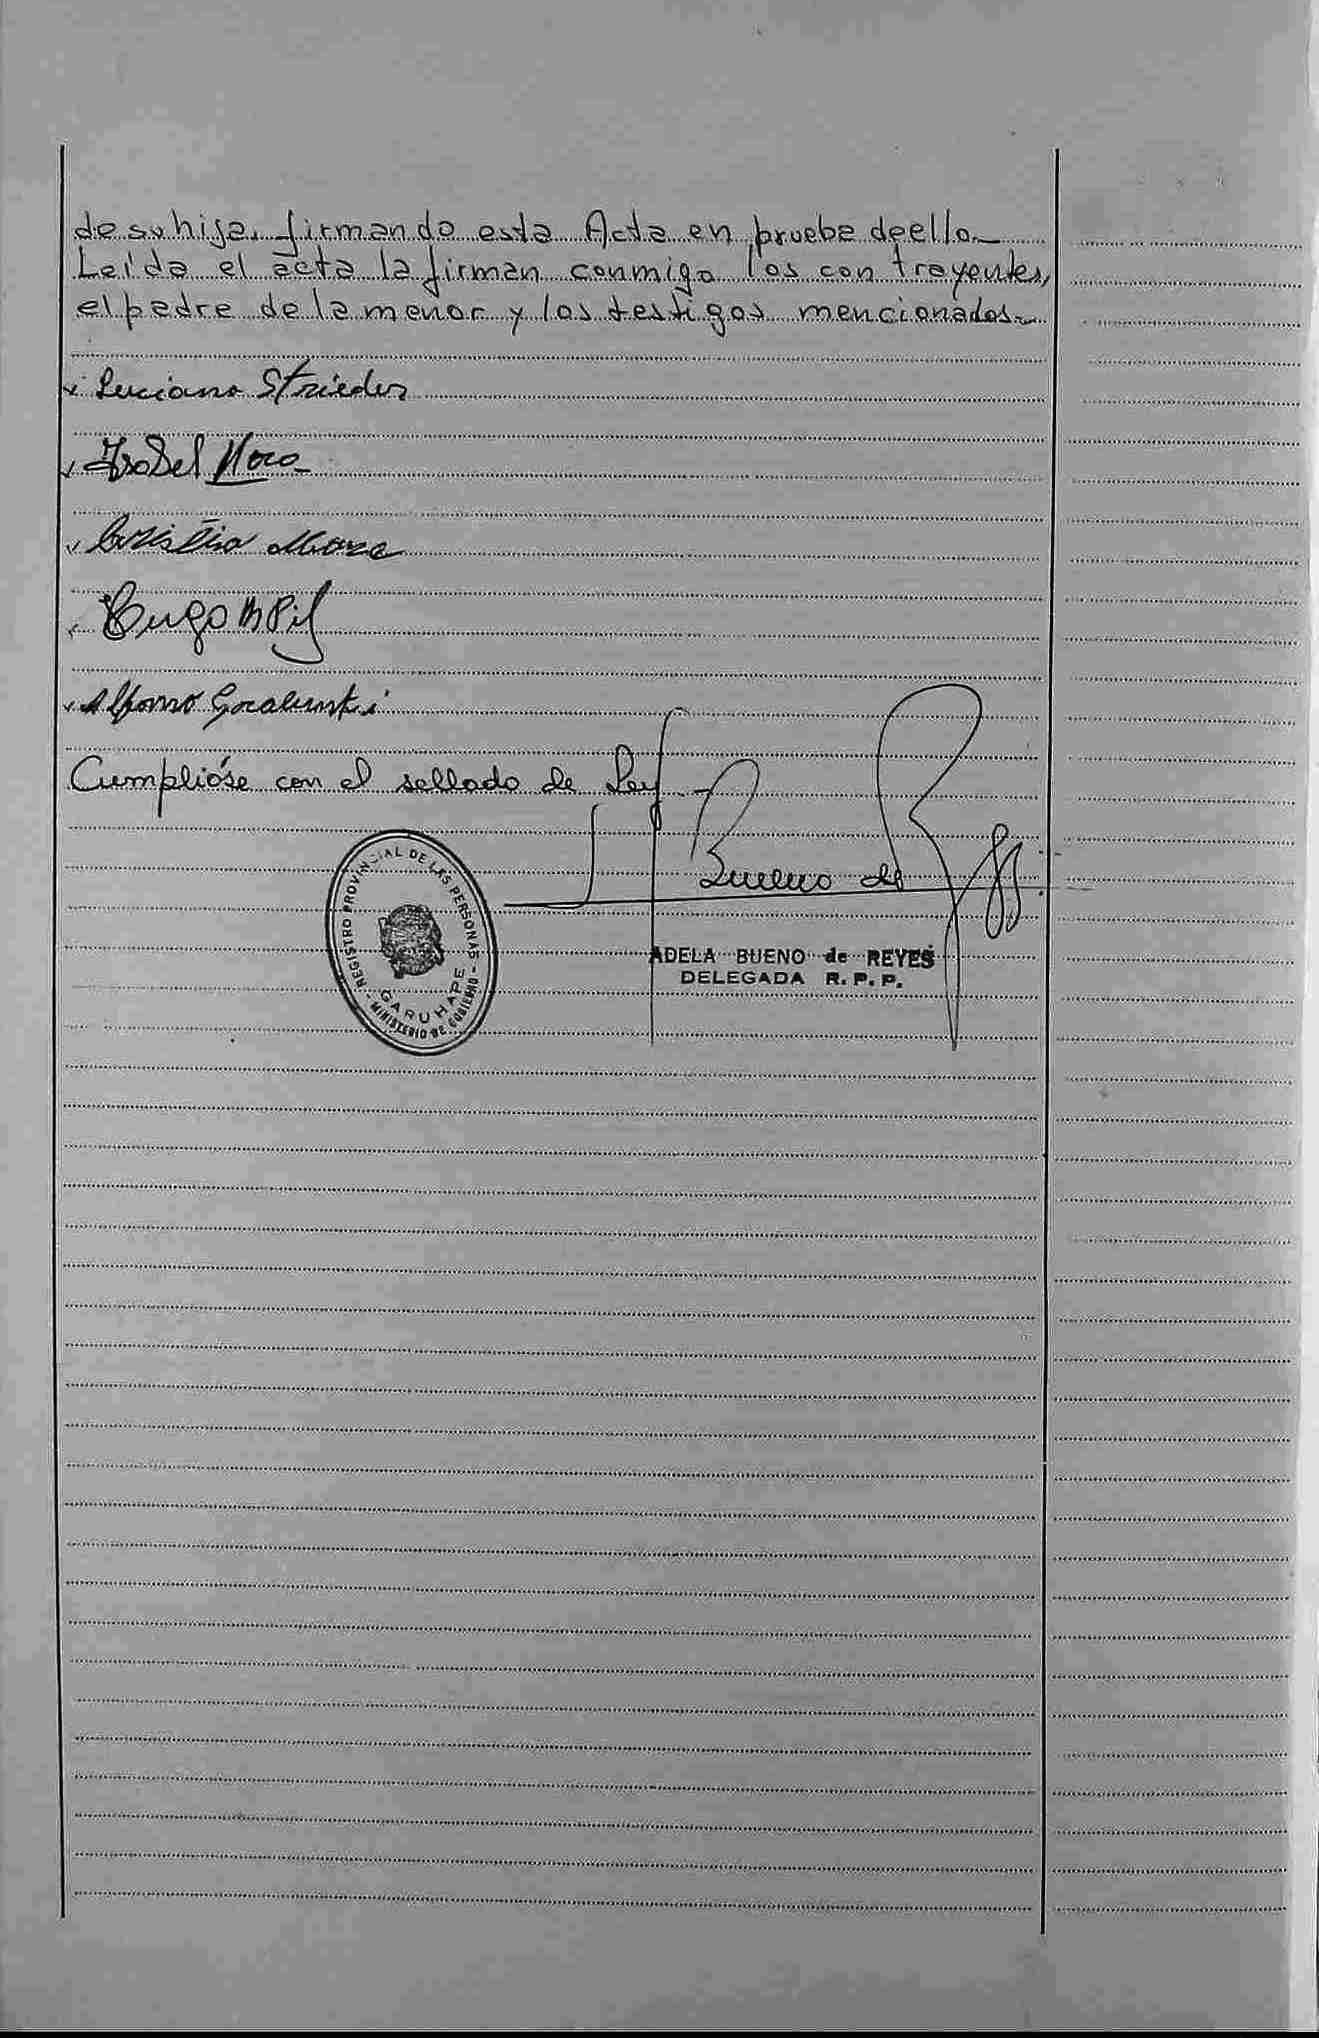 de su hija, firmando esta Acta en prueba de ello._
Leída el acta la firman conmigo los contrayentes,
el padre de la menor y los testigos mencionados._
Luciano Strieder
Isabel Mora
Mora
Hugo
Alfonso
Cumplióse con el sellado de Ley._
Bueno de
REGISTRO PROVINCIAL DE LAS PERSONAS - MINISTERIO DE GOBIERNO -
GARUHAPE
ADELA BUENO de REYES
DELEGADA R.P.P.